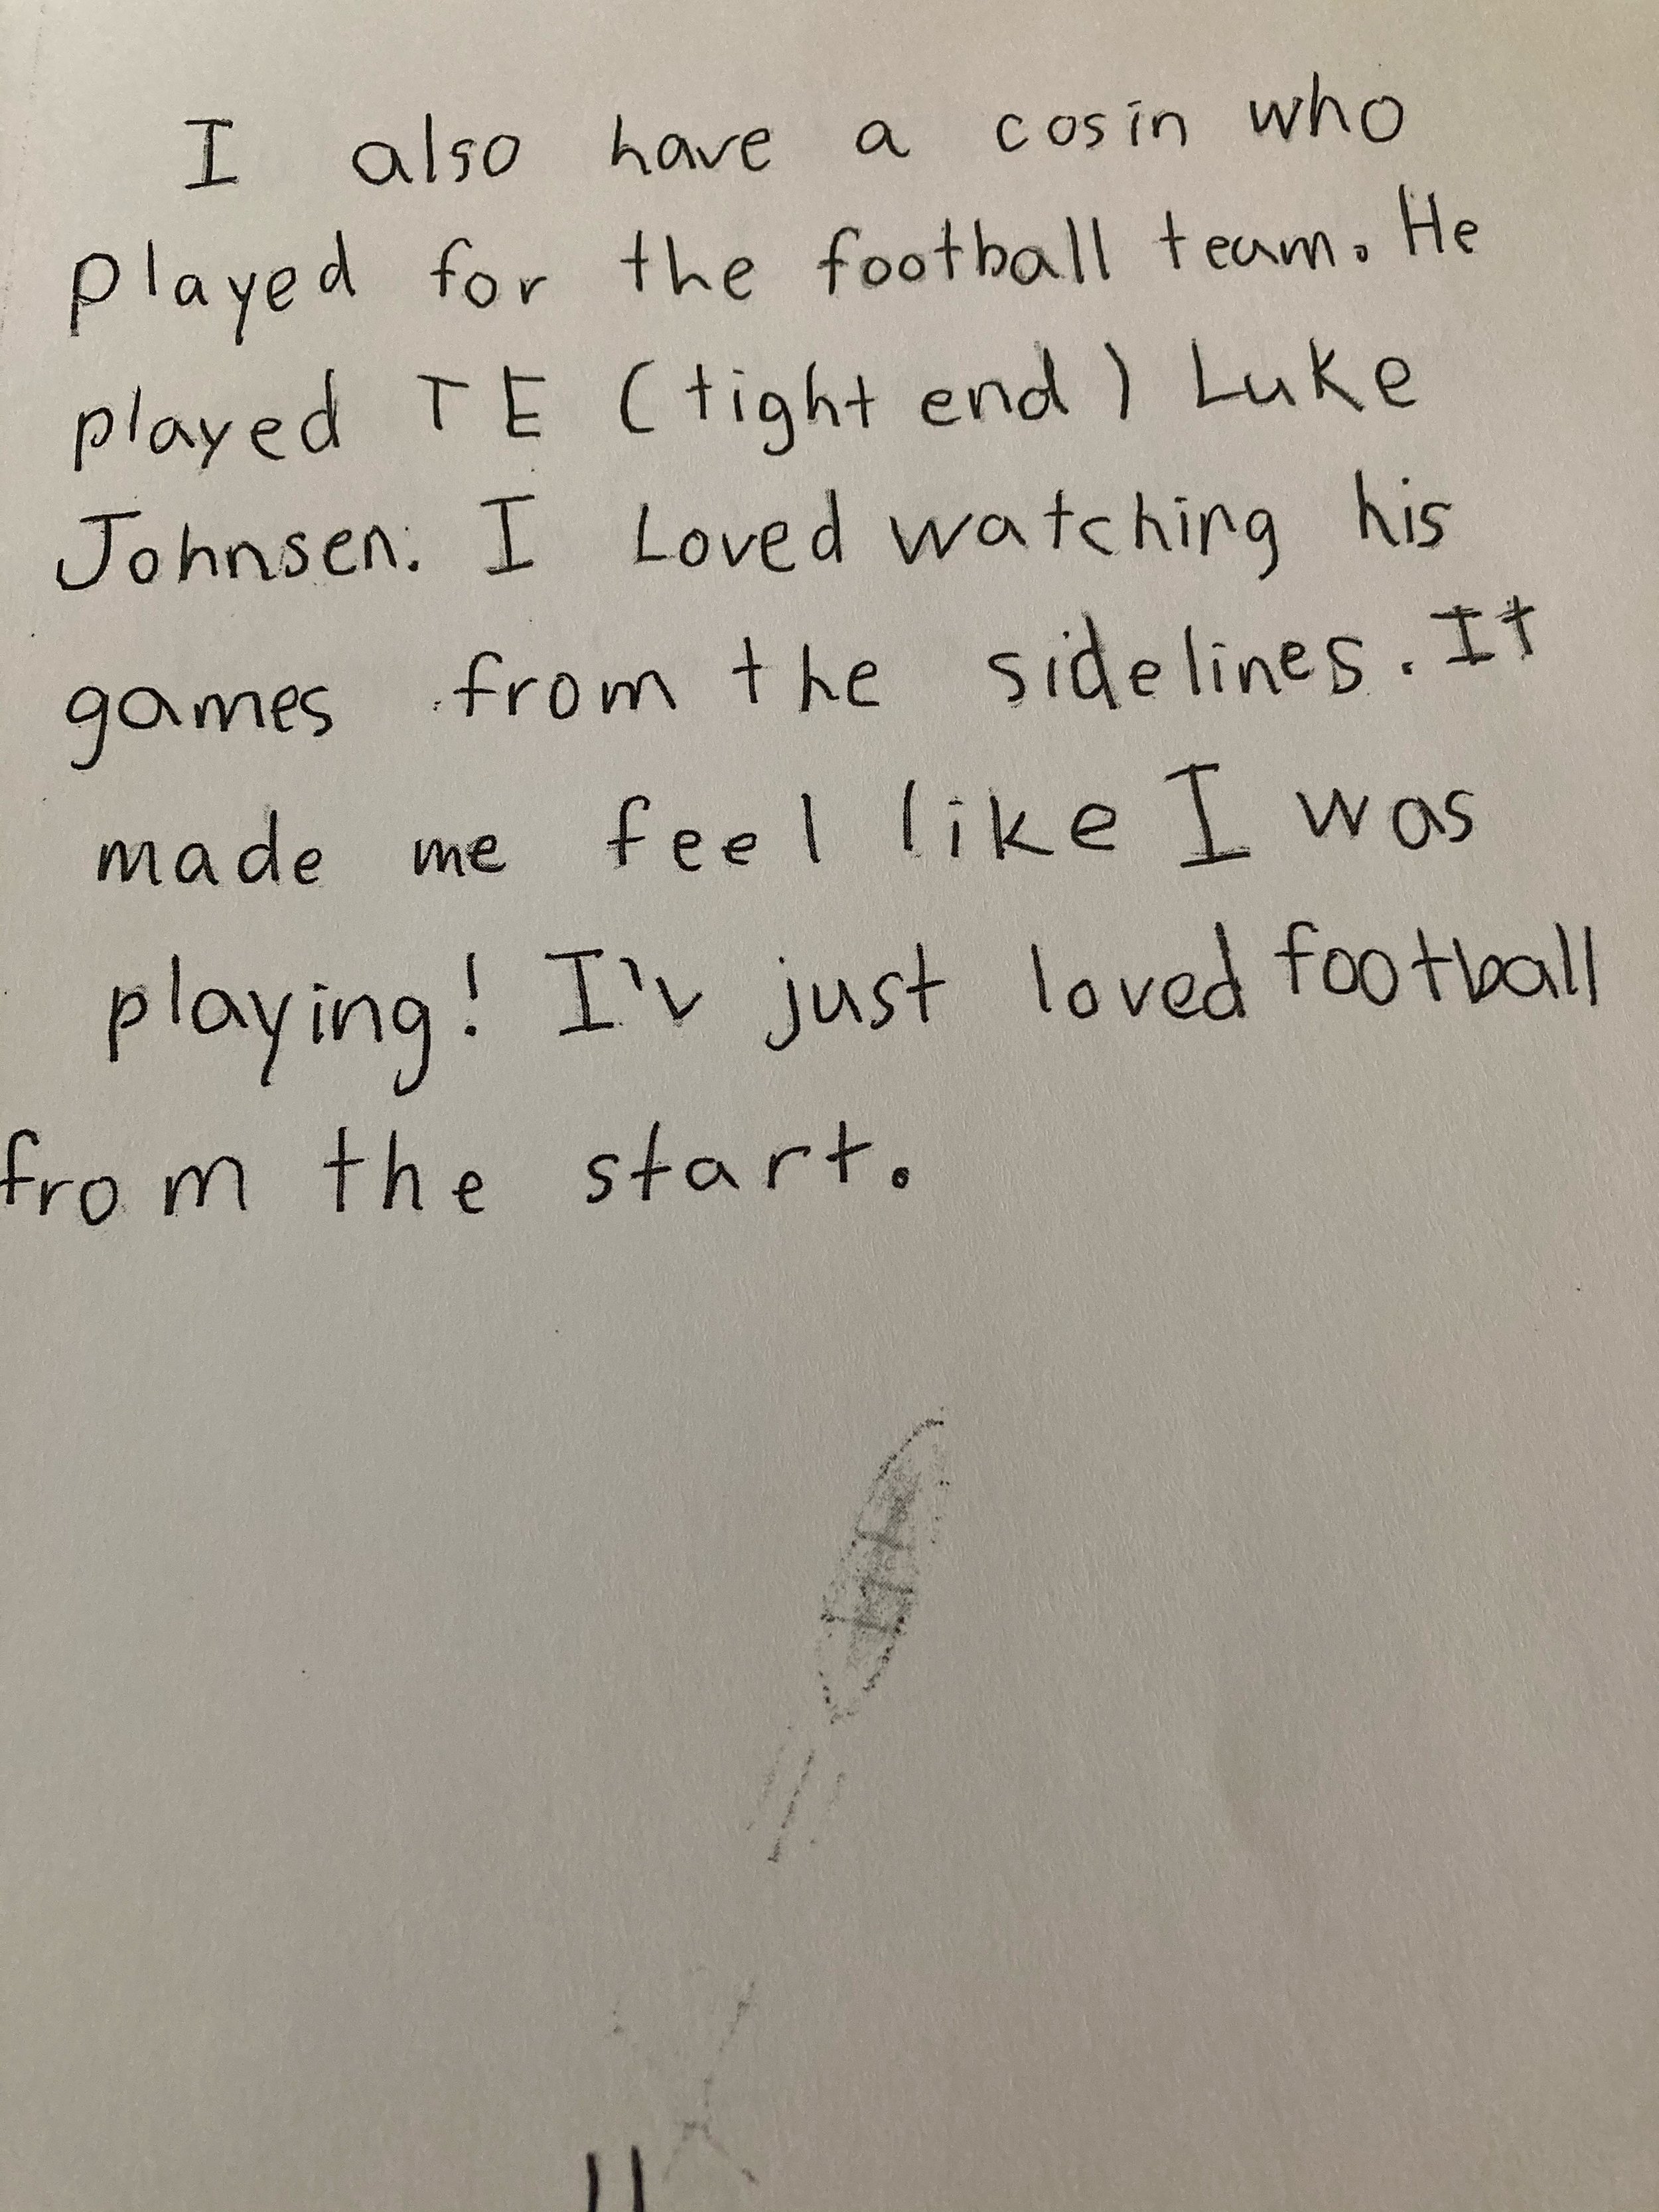 I also have a cosin who
played for the football team. He
played TE (tight end) Luke
Johnsen. I Loved watching his
games from the sidelines. It
made me feel like I was
playing! I'v just loved football
from the start.
11